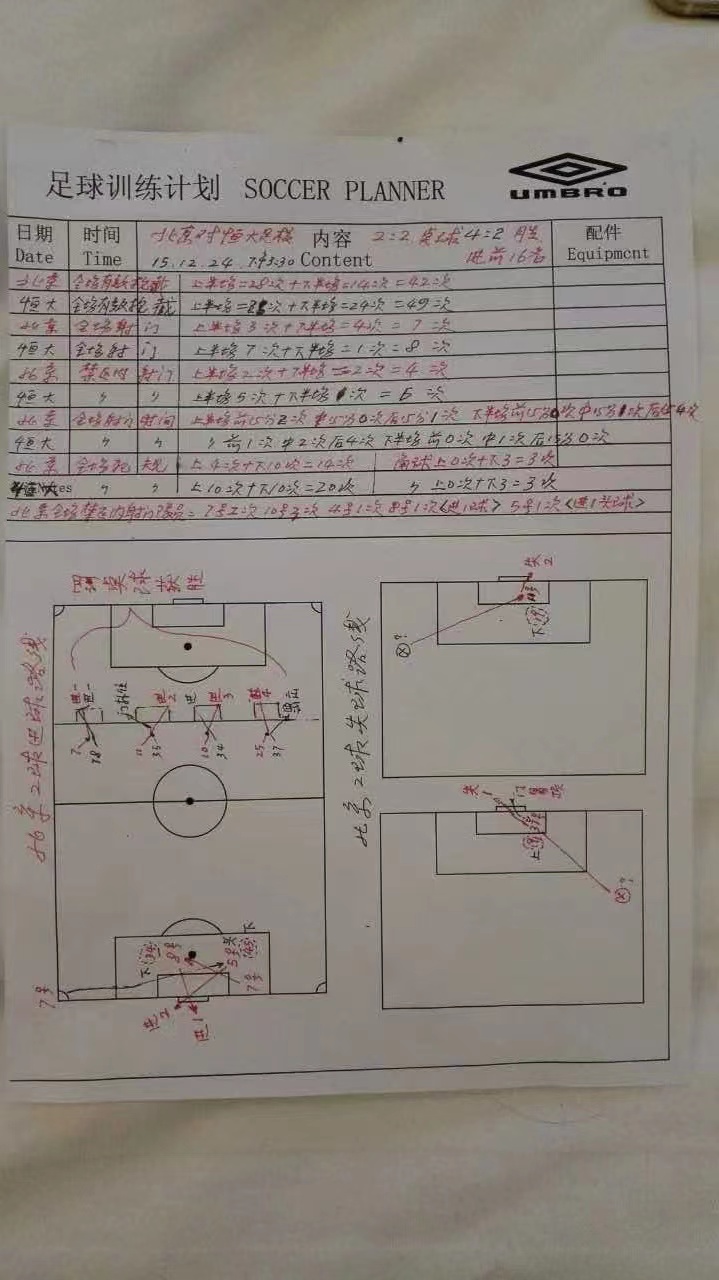 足球训练计划 SOCCER PLANNER
UMBRO
日期 时间 北京对恒大足校 内容 2=2 点球4=2 胜 配件
Date Time 15.12.24 下午3:30 Content 进前16名 Equipment
北京 全场有效抢截 上半场=28次+下半场=14次=42次
恒大 全场有效抢截 上半场= 次+下半场=24次=49次
北京 全场射门 上半场3次+下半场=4次=7次
恒大 全场射门 上半场7次+下半场=1次=8次
北京 禁区内射门 上半场2次+下半场=2次=4次
恒大 〃 〃 上半场5次+下半场1次=6次
北京 全场射门时间 上半场前15分2次中15分0次后15分1次 下半场前15分0次中15分 次后15 4次
恒大 〃 〃 〃前1次中2次后4次 下半场前0次中1次后15分0次
北京 全场犯规 上4次+下10次=14次 角球上0次+下3=3次
恒大 〃 〃 上10次+下10次=20次 〃上0次+下3=3次
北京全场禁区内射门队员=7号2次 10号3次 4号1次 8号1次<进1球> 5号1次<进1头球>
点球 胜
北京2球进球路线
进一 进一
7
28
进2
11
35
进 进3
10
34
4
25
37
7号
下 34分
8号
5号头
下 45分
7号
进2
进1
北京2球失球路线
失2
下
?
失1
门
上
?